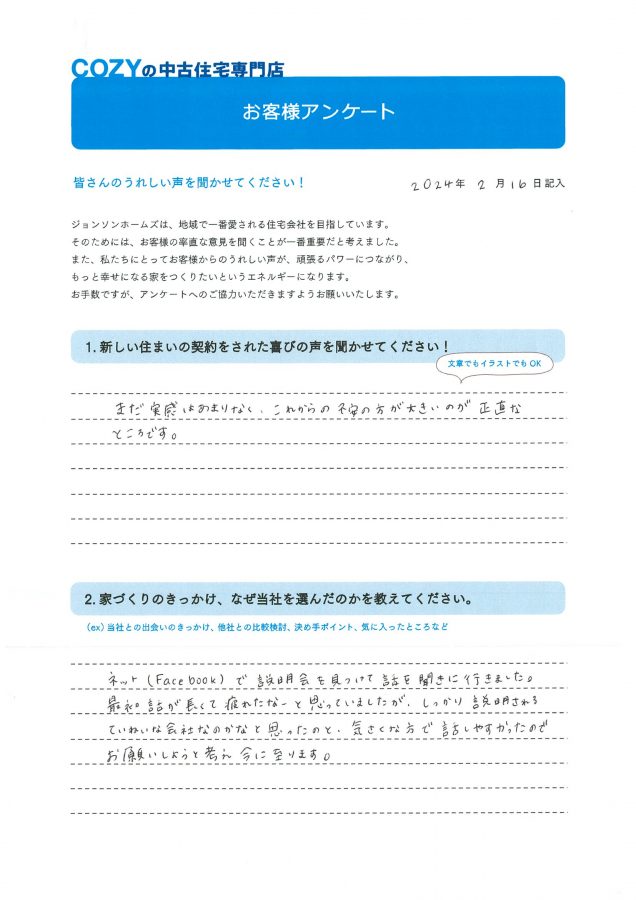 COZYの中古住宅専門店
お客様アンケート
皆さんのうれしい声を聞かせてください！
2024年 2月16日記入
ジョンソンホームズは、地域で一番愛される住宅会社を目指しています。
そのためには、お客様の率直な意見を聞くことが一番重要だと考えました。
また、私たちにとってお客様からのうれしい声が、頑張るパワーにつながり、
もっと幸せになる家をつくりたいというエネルギーになります。
お手数ですが、アンケートへのご協力いただきますようお願いいたします。
1. 新しい住まいの契約をされた喜びの声を聞かせてください！
文章でもイラストでもOK
まだ実感はあまりなく、これからの不安の方が大きいのが正直な
ところです。
2. 家づくりのきっかけ、なぜ当社を選んだのかを教えてください。
（ex）当社との出会いのきっかけ、他社との比較検討、決め手ポイント、気に入ったところなど
ネット(Facebook)で説明会を見つけて話を聞きに行きました。
最初話が長くて疲れたなーと思っていましたが、しっかり説明される
ていねいな会社なのかなと思ったのと、気さくな方で話しやすかったので
お願いしようと考え今に至ります。